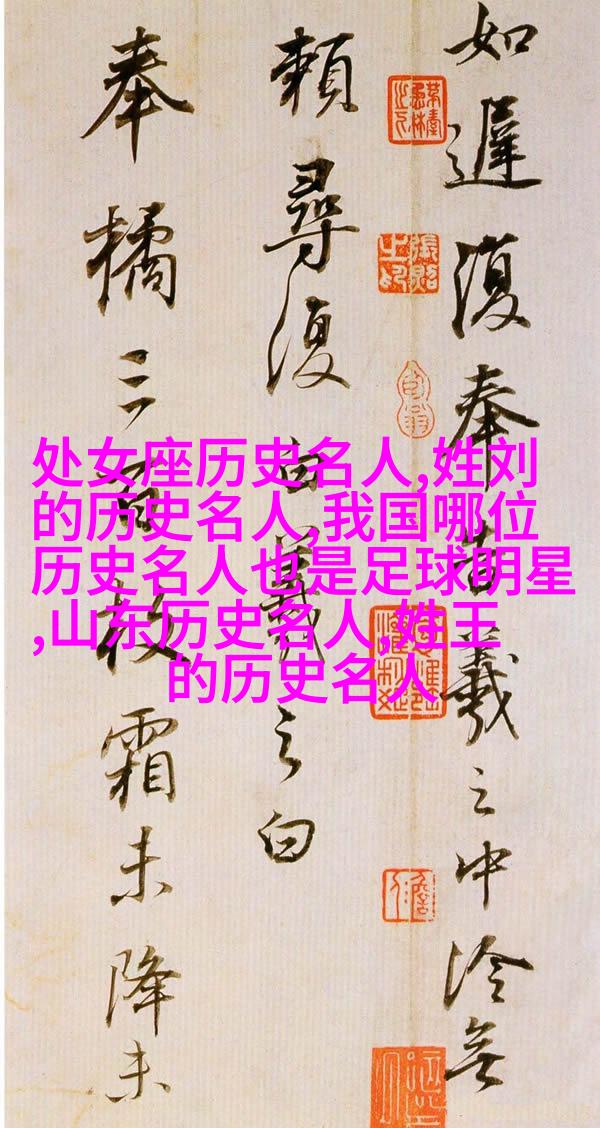 处女座历史名人,姓刘
的历史名人,我国哪位
历史名人也是足球明星
,山东历史名人,姓王
的历史名人
如遲復奉告羲之中冷無
賴尋復白羲之白
奉橘三百枚霜未降未